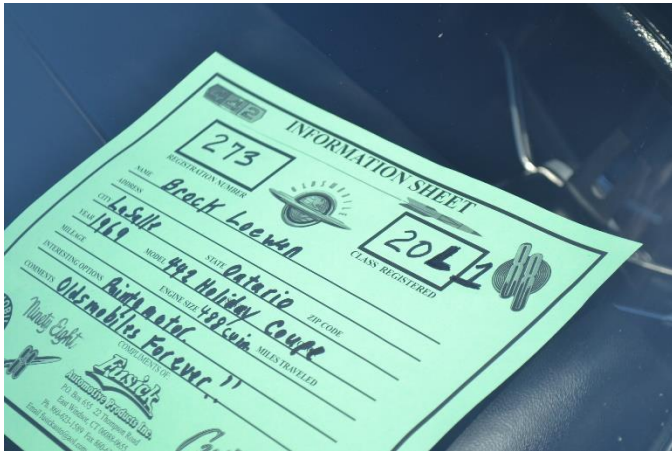 442
INFORMATION SHEET
273
REGISTRATION NUMBER
OLDSMOBILE
20L1
CLASS REGISTERED
88
NAME Brock Loewen
ADDRESS
CITY LaSalle STATE Ontario ZIP CODE
YEAR 1969 MODEL 442 Holiday Coupe
MILEAGE ENGINE SIZE 488cuin. MILES TRAVELED
INTERESTING OPTIONS Paint, motor.
COMMENTS Oldsmobiles Forever!!
Ninety Eight
COMPLIMENTS OF:
Fusick
Automotive Products Inc.
P.O. Box 655, 22 Thompson Road
East Windsor, CT 06088-0655
Ph. 860-623-1589 Fax 860-